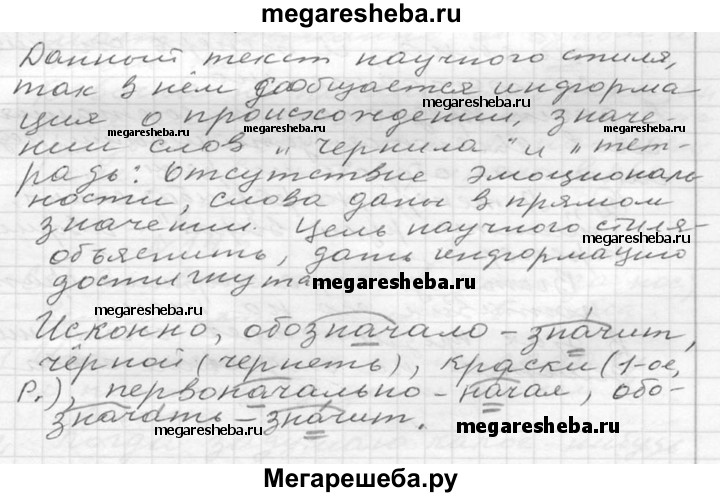 megaresheba.ru
Данный текст научного стиля,
так в нём сообщается информа
ция о происхождении, значе-
нии слов „чернила" и „тет-
радь: Отсутствие эмоциональ
ности, слова даны в прямом
значении. Цель научного стиля-
объяснить, дать информацию
достигнута
Исконно, обозначало – значит,
чёрной (чернеть), краски (1-ое,
Р.), первоначально – начал, обо-
значать – значит.
megaresheba.ru
megaresheba.ru
megaresheba.ru
megaresheba.ru
megaresheba.ru
megaresheba.ru
megaresheba.ru
megaresheba.ru
megaresheba.ru
Мегарешеба.ру